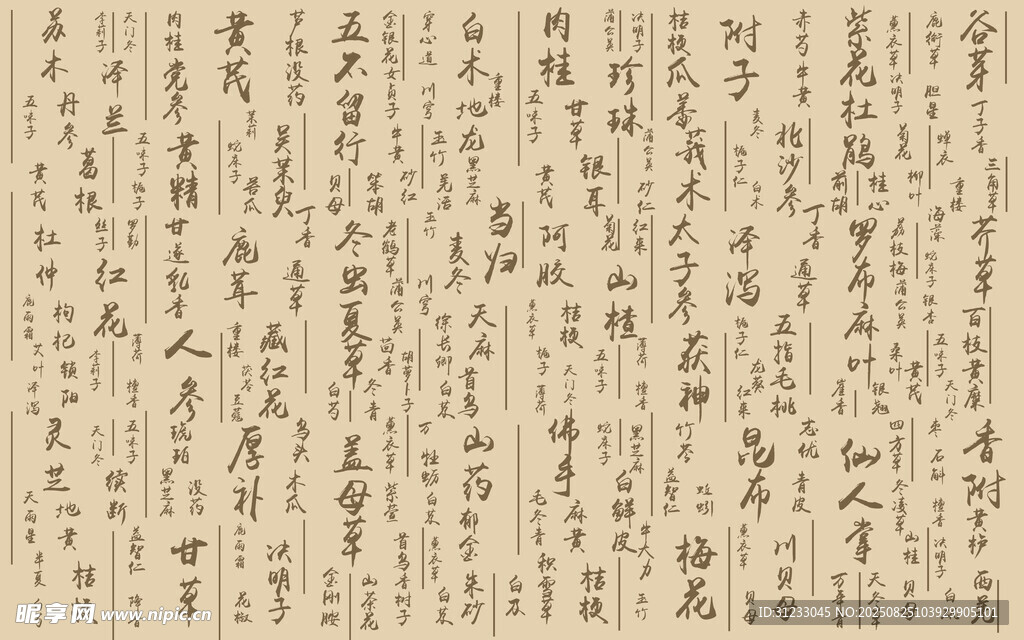 苏木
李莉子
天门冬
肉桂
黄芪
芦根
没药
五不留行
金银花
女贞子
穿心道
白术
重楼
肉桂
蒲公英
决明子
桔梗
附子
赤芍
牛黄
紫花杜鹃
薰衣草
决明子
鹿衔草
胆星
谷芽
泽兰
党参
川芎
地龙
五味子
甘草
珍珠
瓜蒌
麦冬
北沙参
菊花
蝉衣
丁子香
五味子
丹参
五味子
栀子
黄精
茉莉
蛇床子
吴茱萸
牛黄
玉竹
黑芝麻
银耳
蒲公英
莪术
栀子仁
前胡
桂心
柳叶
三角草
黄芪
葛根
苦瓜
贝母
柴胡
砂红
黄芪
砂仁
白术
重楼
杜仲
丝子
红花
甘遂
乳香
鹿茸
丁香
通草
冬虫夏草
老鹤草
蒲公英
玉竹
麦冬
当归
阿胶
菊花
红枣
太子参
泽泻
丁香
通草
罗布麻叶
荔枝梅
蒲公英
海藻
蛇床子
银杏
芥草
枸杞
锁阳
李莉子
薄荷
檀香
人参
重楼
茯苓
豆蔻
藏红花
白芍
茴香
冬青
胡萝卜子
川芎
徐长卿
白芨
天麻
首乌
薰衣草
栀子
薄荷
桔梗
天门冬
五味子
山楂
薄荷
檀香
茯神
栀子仁
龙葵
红枣
五指毛桃
崔香
桑叶
银翘
黄芪
五味子
天门冬
百枝
黄糜
艾叶
泽泻
灵芝
天门冬
五味子
琥珀
厚补
乌头
木瓜
盖母草
薰衣草
紫萱
万
牡蛎
白芨
山药
佛手
蛇床子
黑芝麻
竹苓
昆布
志优
青皮
仙人掌
四方草
冬凌草
枣
石斛
香附
天雨星
地黄
续断
黑芝麻
没药
毛冬青
麻黄
白鲜皮
益智仁
蜈蚣
山桂
檀香
决明子
黄栌
半夏
桔梗
益智仁
甘草
鹿雨霜
花椒
决明子
金刚胺
山茶花
首乌
香树子
薰衣草
白芨
郁金
朱砂
白及
积雪草
桔梗
牛大力
玉竹
梅花
薰衣草
贝母
川贝母
万年青
天冬
贝母
西芫
昵享网 www.nipic.cn
ID:31233045 NO:20250825103929905101